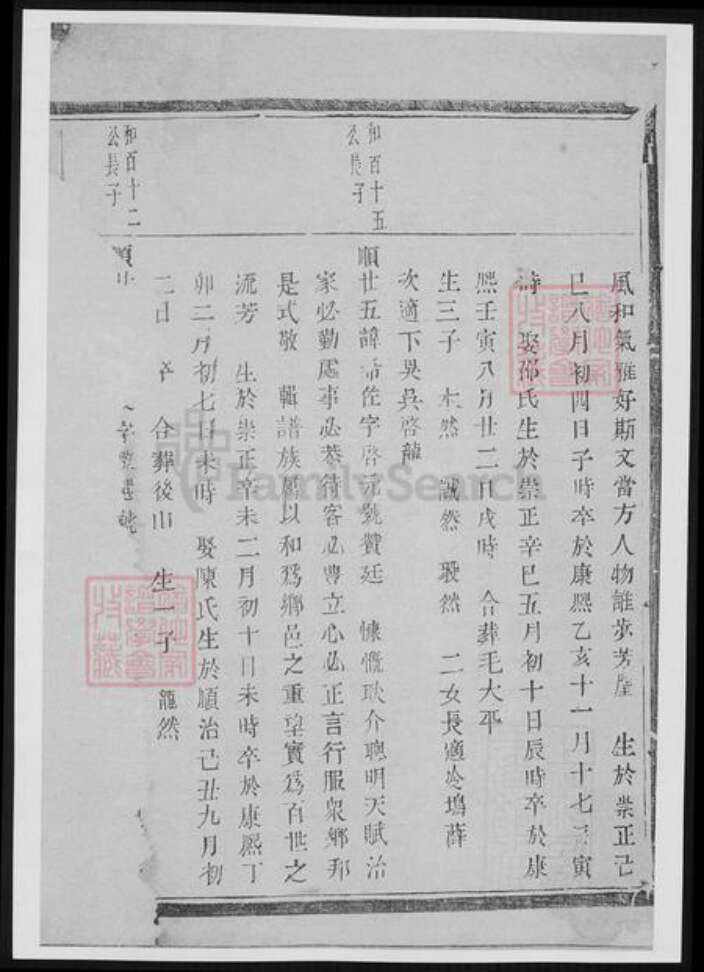 風和氣雅好斯文當方人物誰步芳塵 生於崇正己
巳八月初四日子時卒於康熙乙亥十一月十七日寅
時 娶邵氏生於崇正辛巳五月初十日辰時卒於康
熙壬寅八月廿二日戌時 合葬毛大平
生三子 本然 誠然 毅然 二女長適冷塢薛
次適下吳吳啓龍
和百十五
公長子
順廿五諱 佐字啓元號贊廷 慷慨耿介聰明天賦治
家必勤處事必恭待客必豐立心必正言行服衆鄉邦
是式敬 輯譜族屬以和爲鄉邑之重望實爲百世之
流芳 生於崇正辛未二月初十日未時卒於康熙丁
卯二月初七日未時 娶陳氏生於順治己丑九月初
二日 合葬後山 生一子 龍然
和百十二
公長子
順廿
FamilySearch